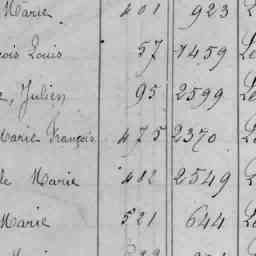 Marie 401 923
Louis 57 1459 Le
Julien 95 2599 Le
Marie François 475 2370 Le
le Marie 412 2549 L
Marie 521 644 Le